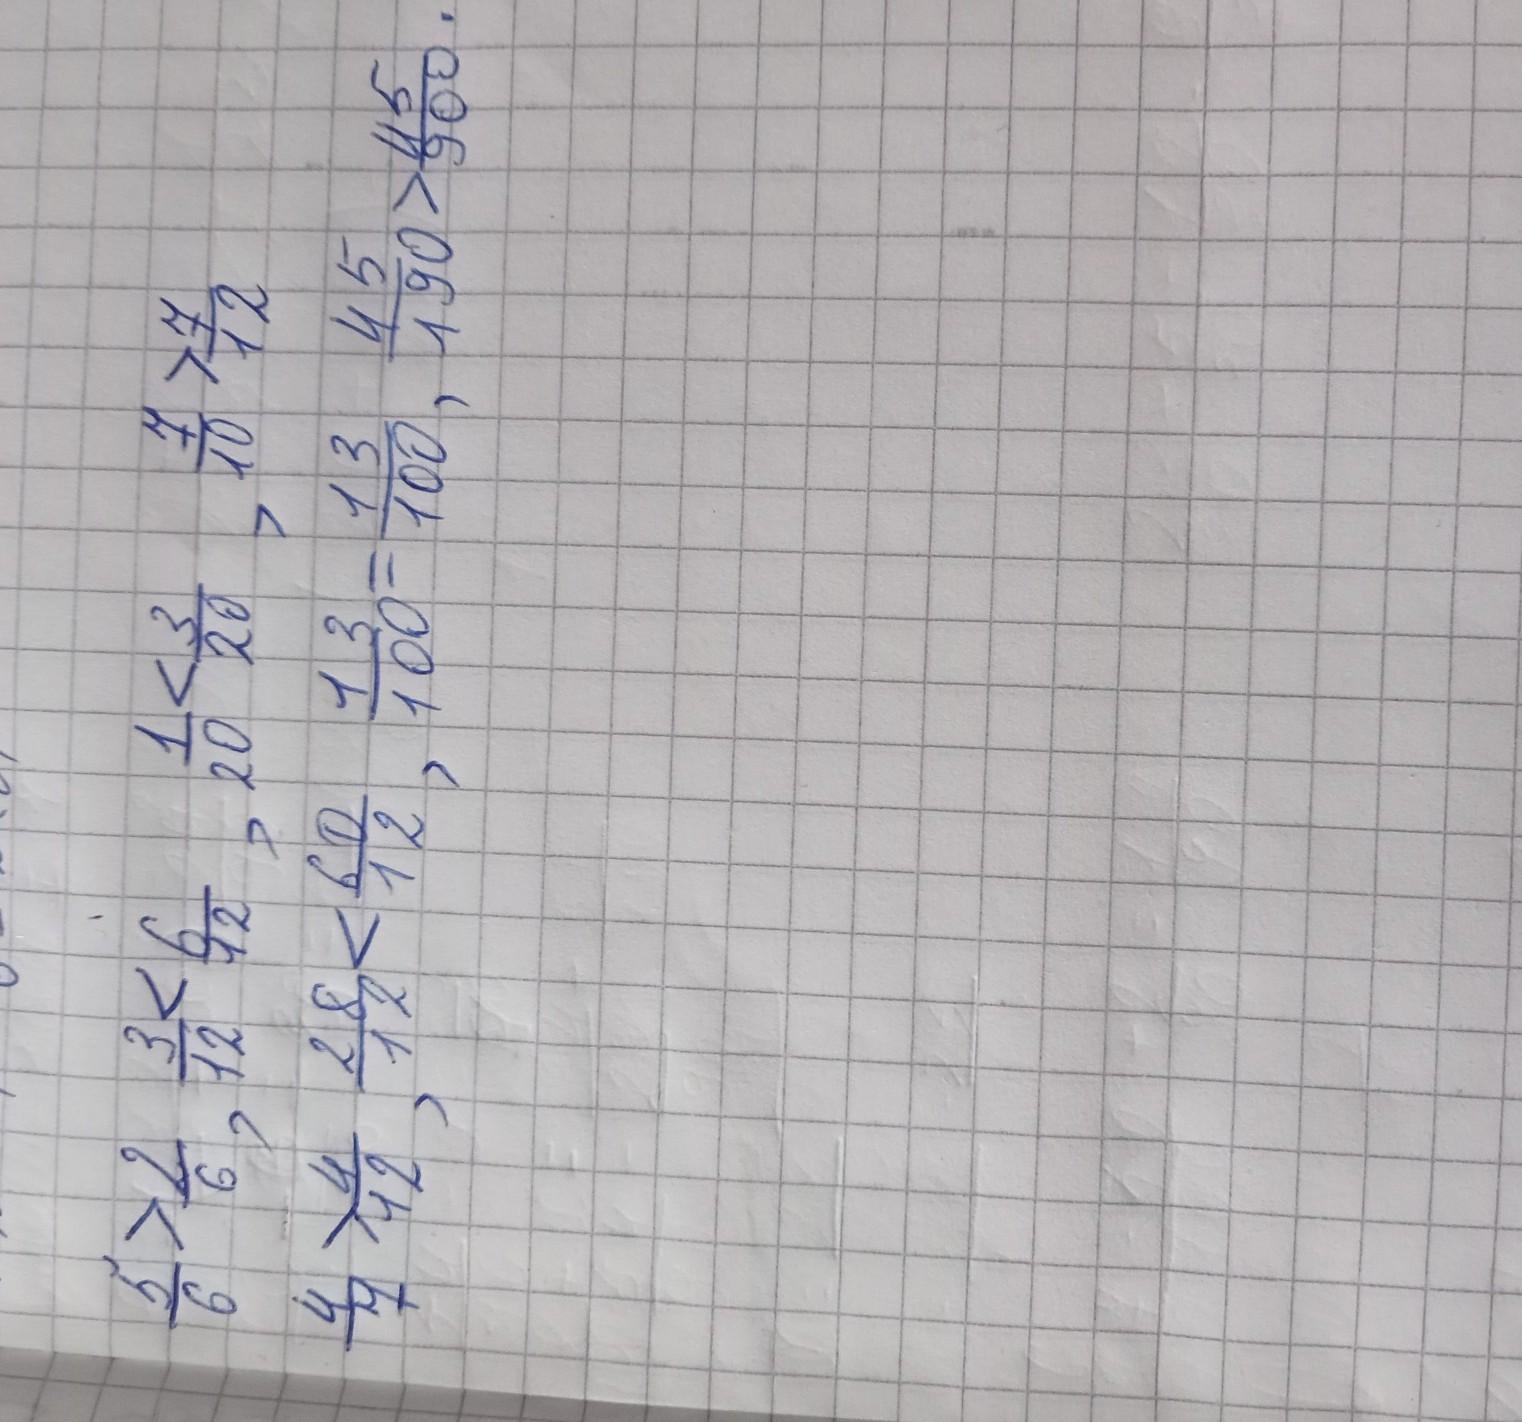 5/6 > 2/6, 3/12 < 6/12, 1/20 < 3/20, 7/10 > 7/12
4/7 > 4/12, 28/12 < 60/12, 13/100 = 13/100, 45/190 > 45/900.